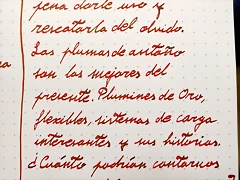 pena darle uso y
rescatarla del olvido.
Las plumas de antaño
son las mejores del
presente. Plumines de Oro,
flexibles, sistemas de carga
interesantes y sus historias.
¿Cuánto podrían contarnos